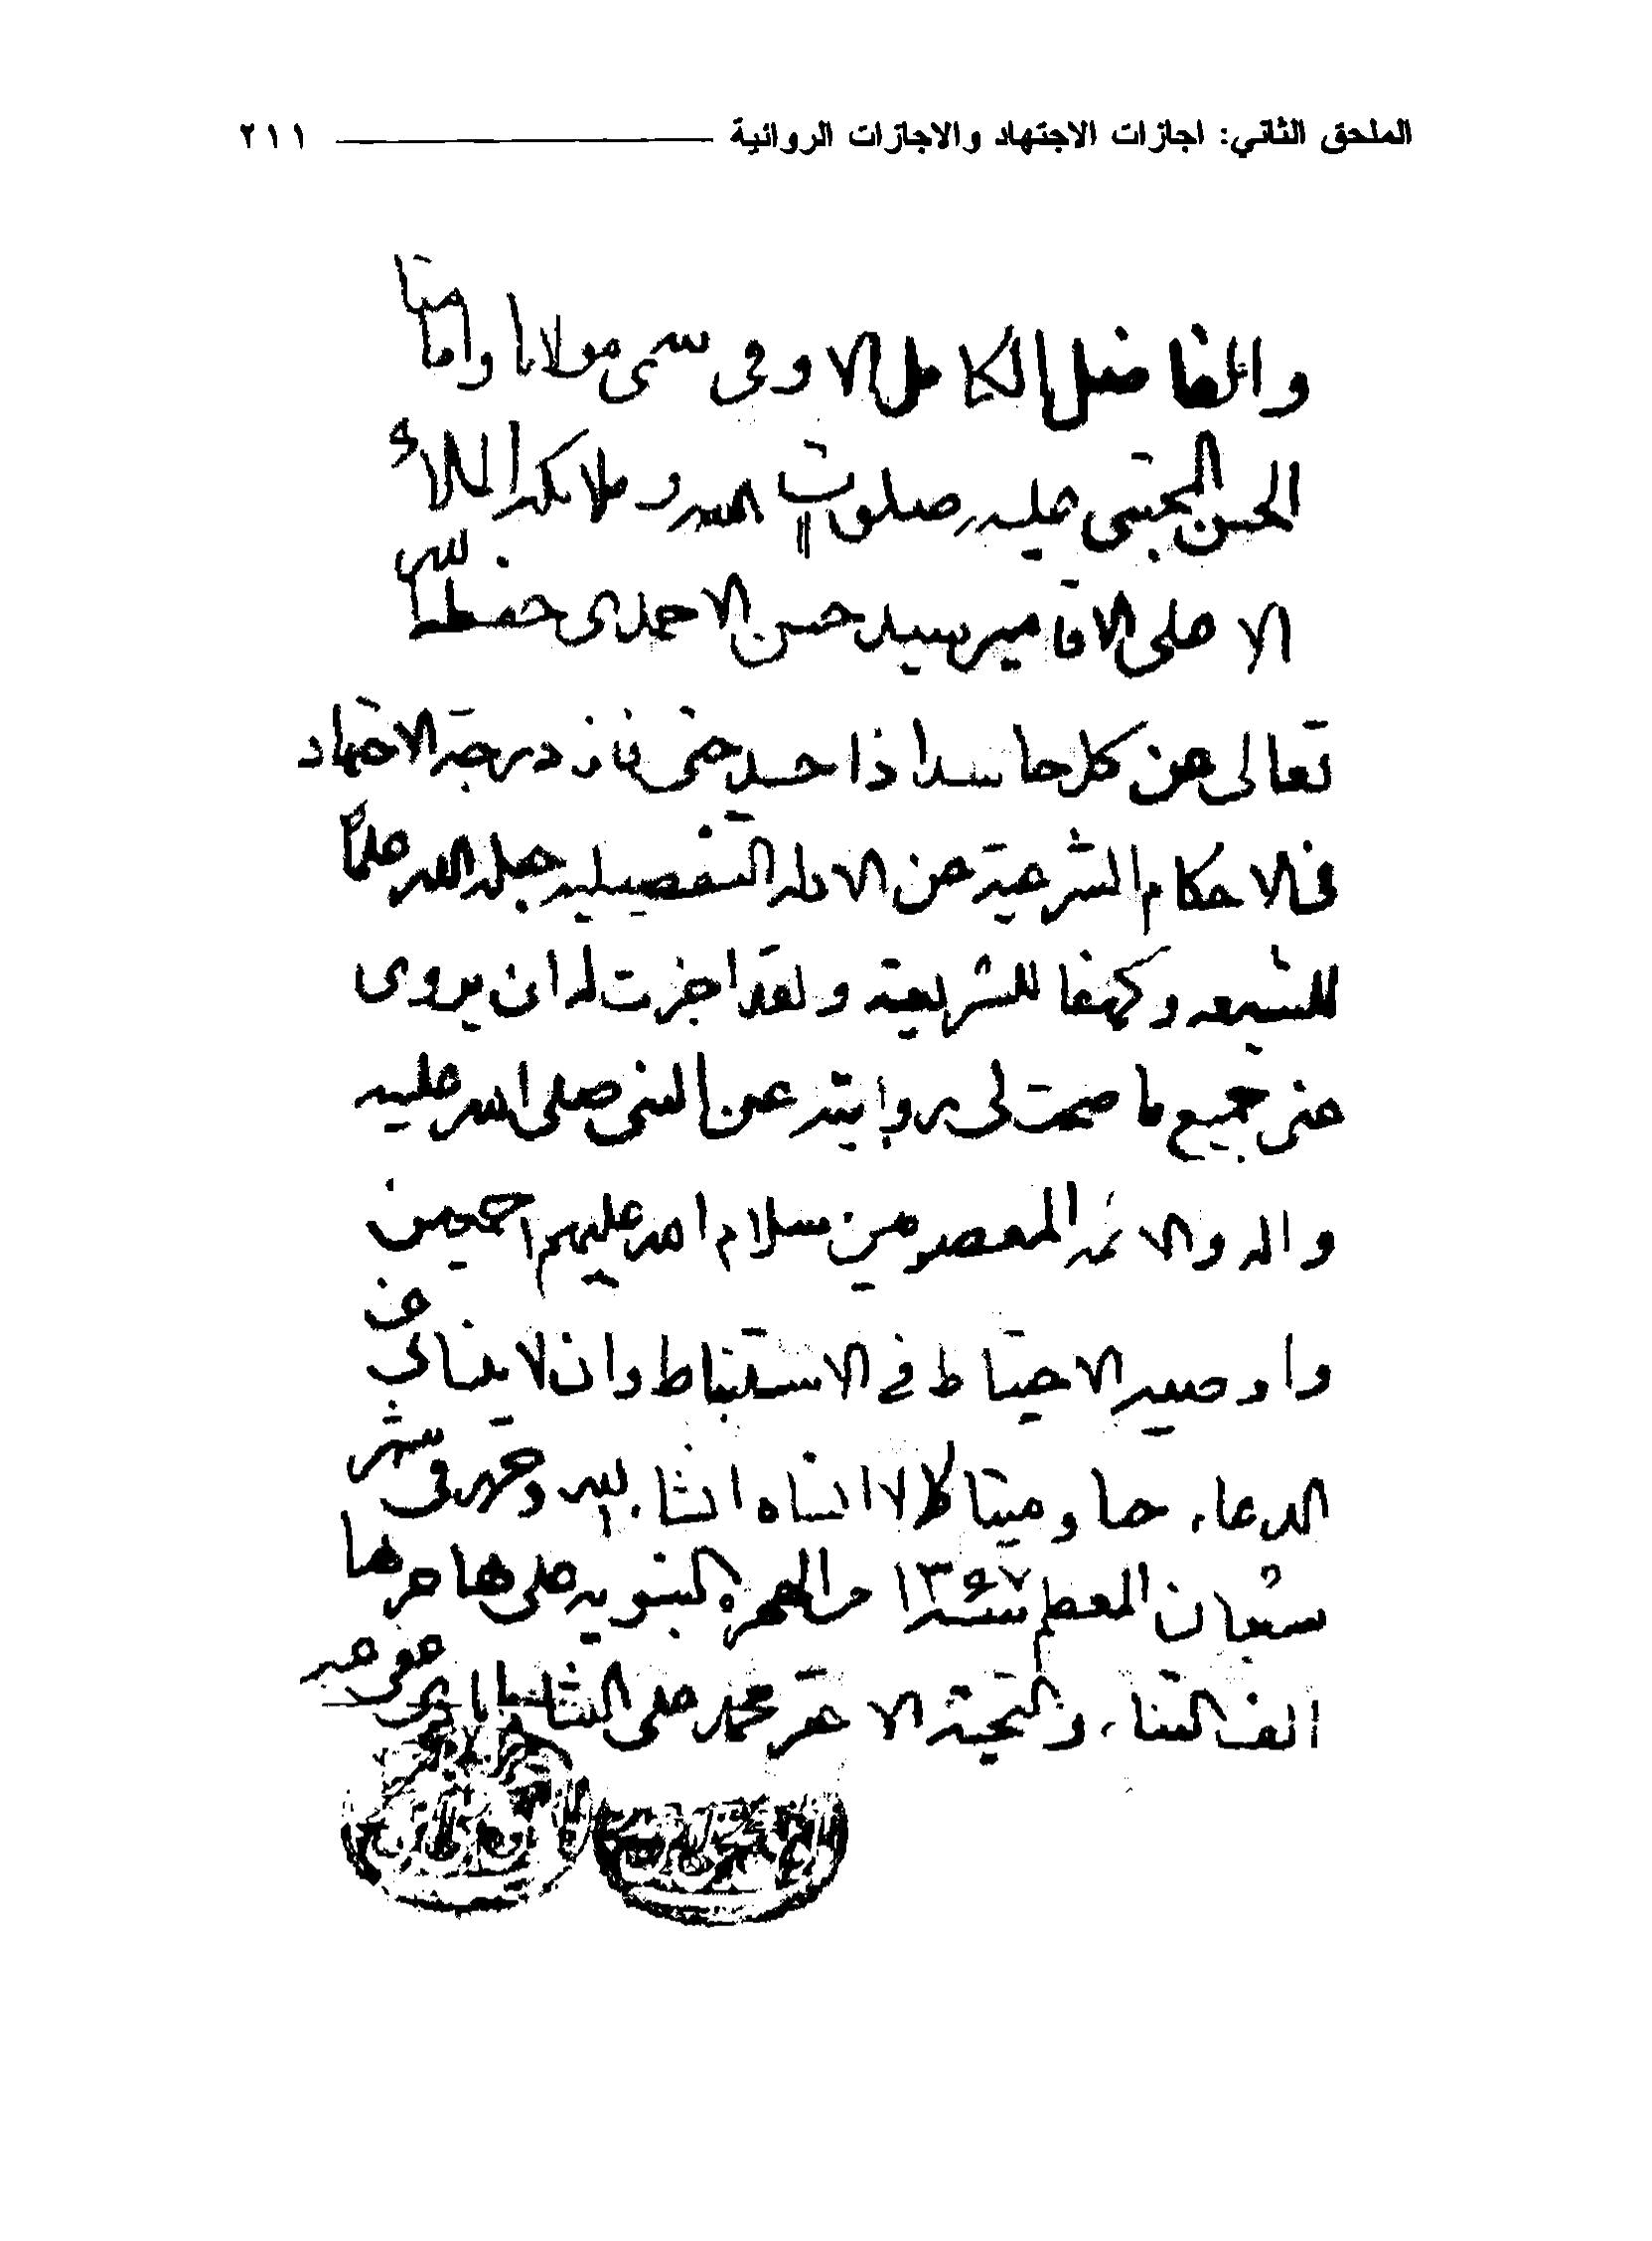 الملحق الثاني: اجازات الاجتهاد والاجازات الروائية ٢١١
والفاضل الكامل الاوفى سمى مولانا وامامنا
الحسن المجتبى عليه صلوات الله وملائكة الملاء
الاعلى الاقا مير سيد حسن الاحمدى حفظه الله
تعالى عن كل حاسد اذا حسد حتى فاز درجة الاجتهاد
فى الاحكام الشرعية عن الادله التفصيليه جعله الله علما
للشيعه وكهفا للشريعة ولقد اجزت له ان يروى
عنى جميع ما صحت لى روايته عن النبى صلى الله عليه
واله والائمه المعصومين سلام الله عليهم اجمعين
واوصيه الاحتياط فى الاستنباط وان لا ينسانى من
الدعاء حيا وميتا كما لا انساه انشاء الله وحرر فى شهر
شعبان المعظم سنه ١٣٩٧ من الهجرة النبويه على هاجرها
الف الثناء والتحية الاحقر محمد على